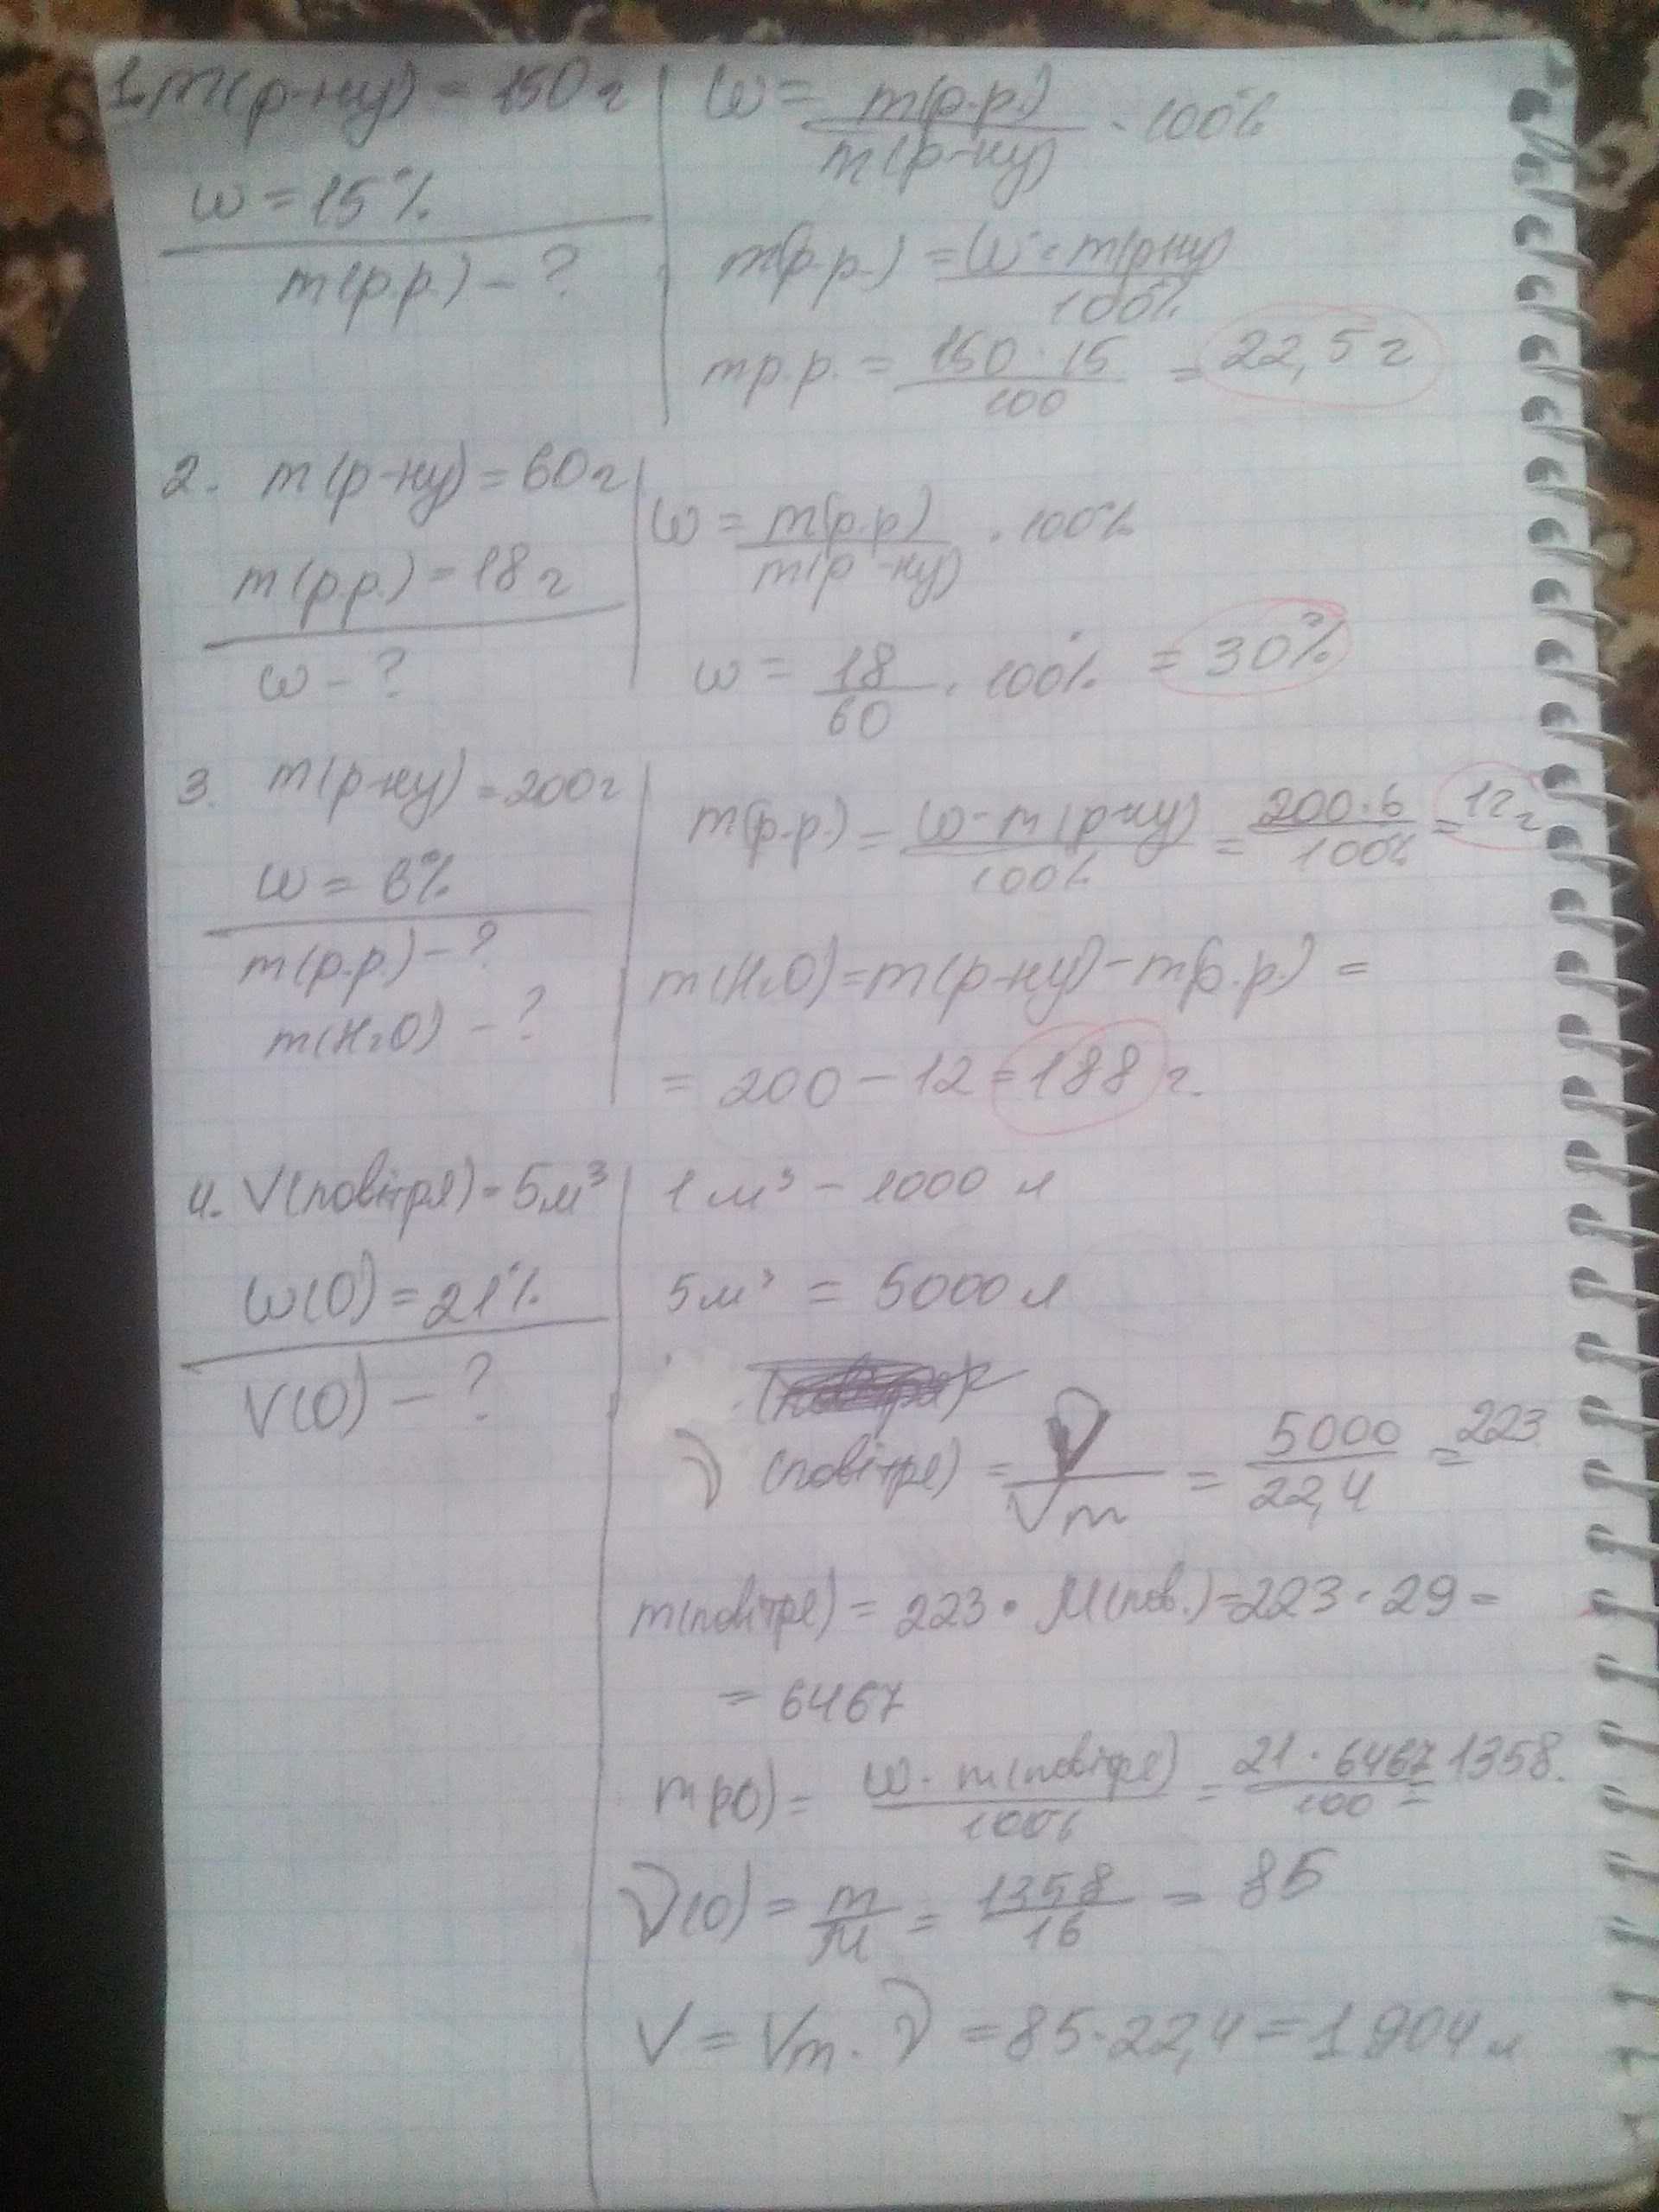 1. m(р-ну) = 150 г
ω = 15%
m(р.р.) - ?
ω = m(р.р.) / m(р-ну) · 100%
m(р.р.) = ω · m(р-ну) / 100%
mр.р. = 150 · 15 / 100 = 22,5 г
2. m(р-ну) = 60 г
m(р.р.) = 18 г
ω - ?
ω = m(р.р) / m(р-ну) · 100%
ω = 18 / 60 · 100% = 30%
3. m(р-ну) = 200 г
ω = 6%
m(р.р.) - ?
m(H₂O) - ?
m(р.р.) = ω · m(р-ну) / 100% = 200 · 6 / 100% = 12 г
m(H₂O) = m(р-ну) - m(р.р.) =
= 200 - 12 = 188 г.
4. V(повітря) = 5 м³
ω(O) = 21%
V(O) - ?
1 м³ - 1000 л
5 м³ = 5000 л
ν (повітря) = V / Vm = 5000 / 22,4 = 223
m(повітря) = 223 · M(пов.) = 223 · 29 =
= 6467
m(O) = ω · m(повітря) / 100% = 21 · 6467 / 100 = 1358.
ν(O) = m / M = 1358 / 16 = 85
V = Vm · ν = 85 · 22,4 = 1904 л